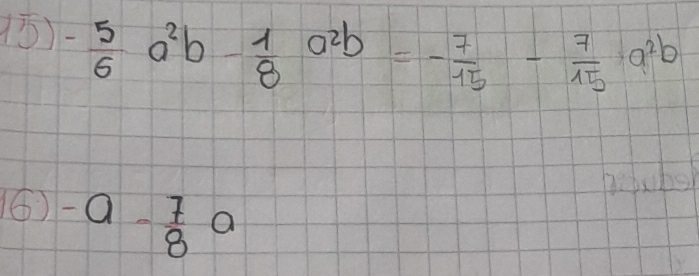 15) - 5/6 a²b - 1/8 a²b = - 7/15 - 7/15 a²b
16) - a - 7/8 a